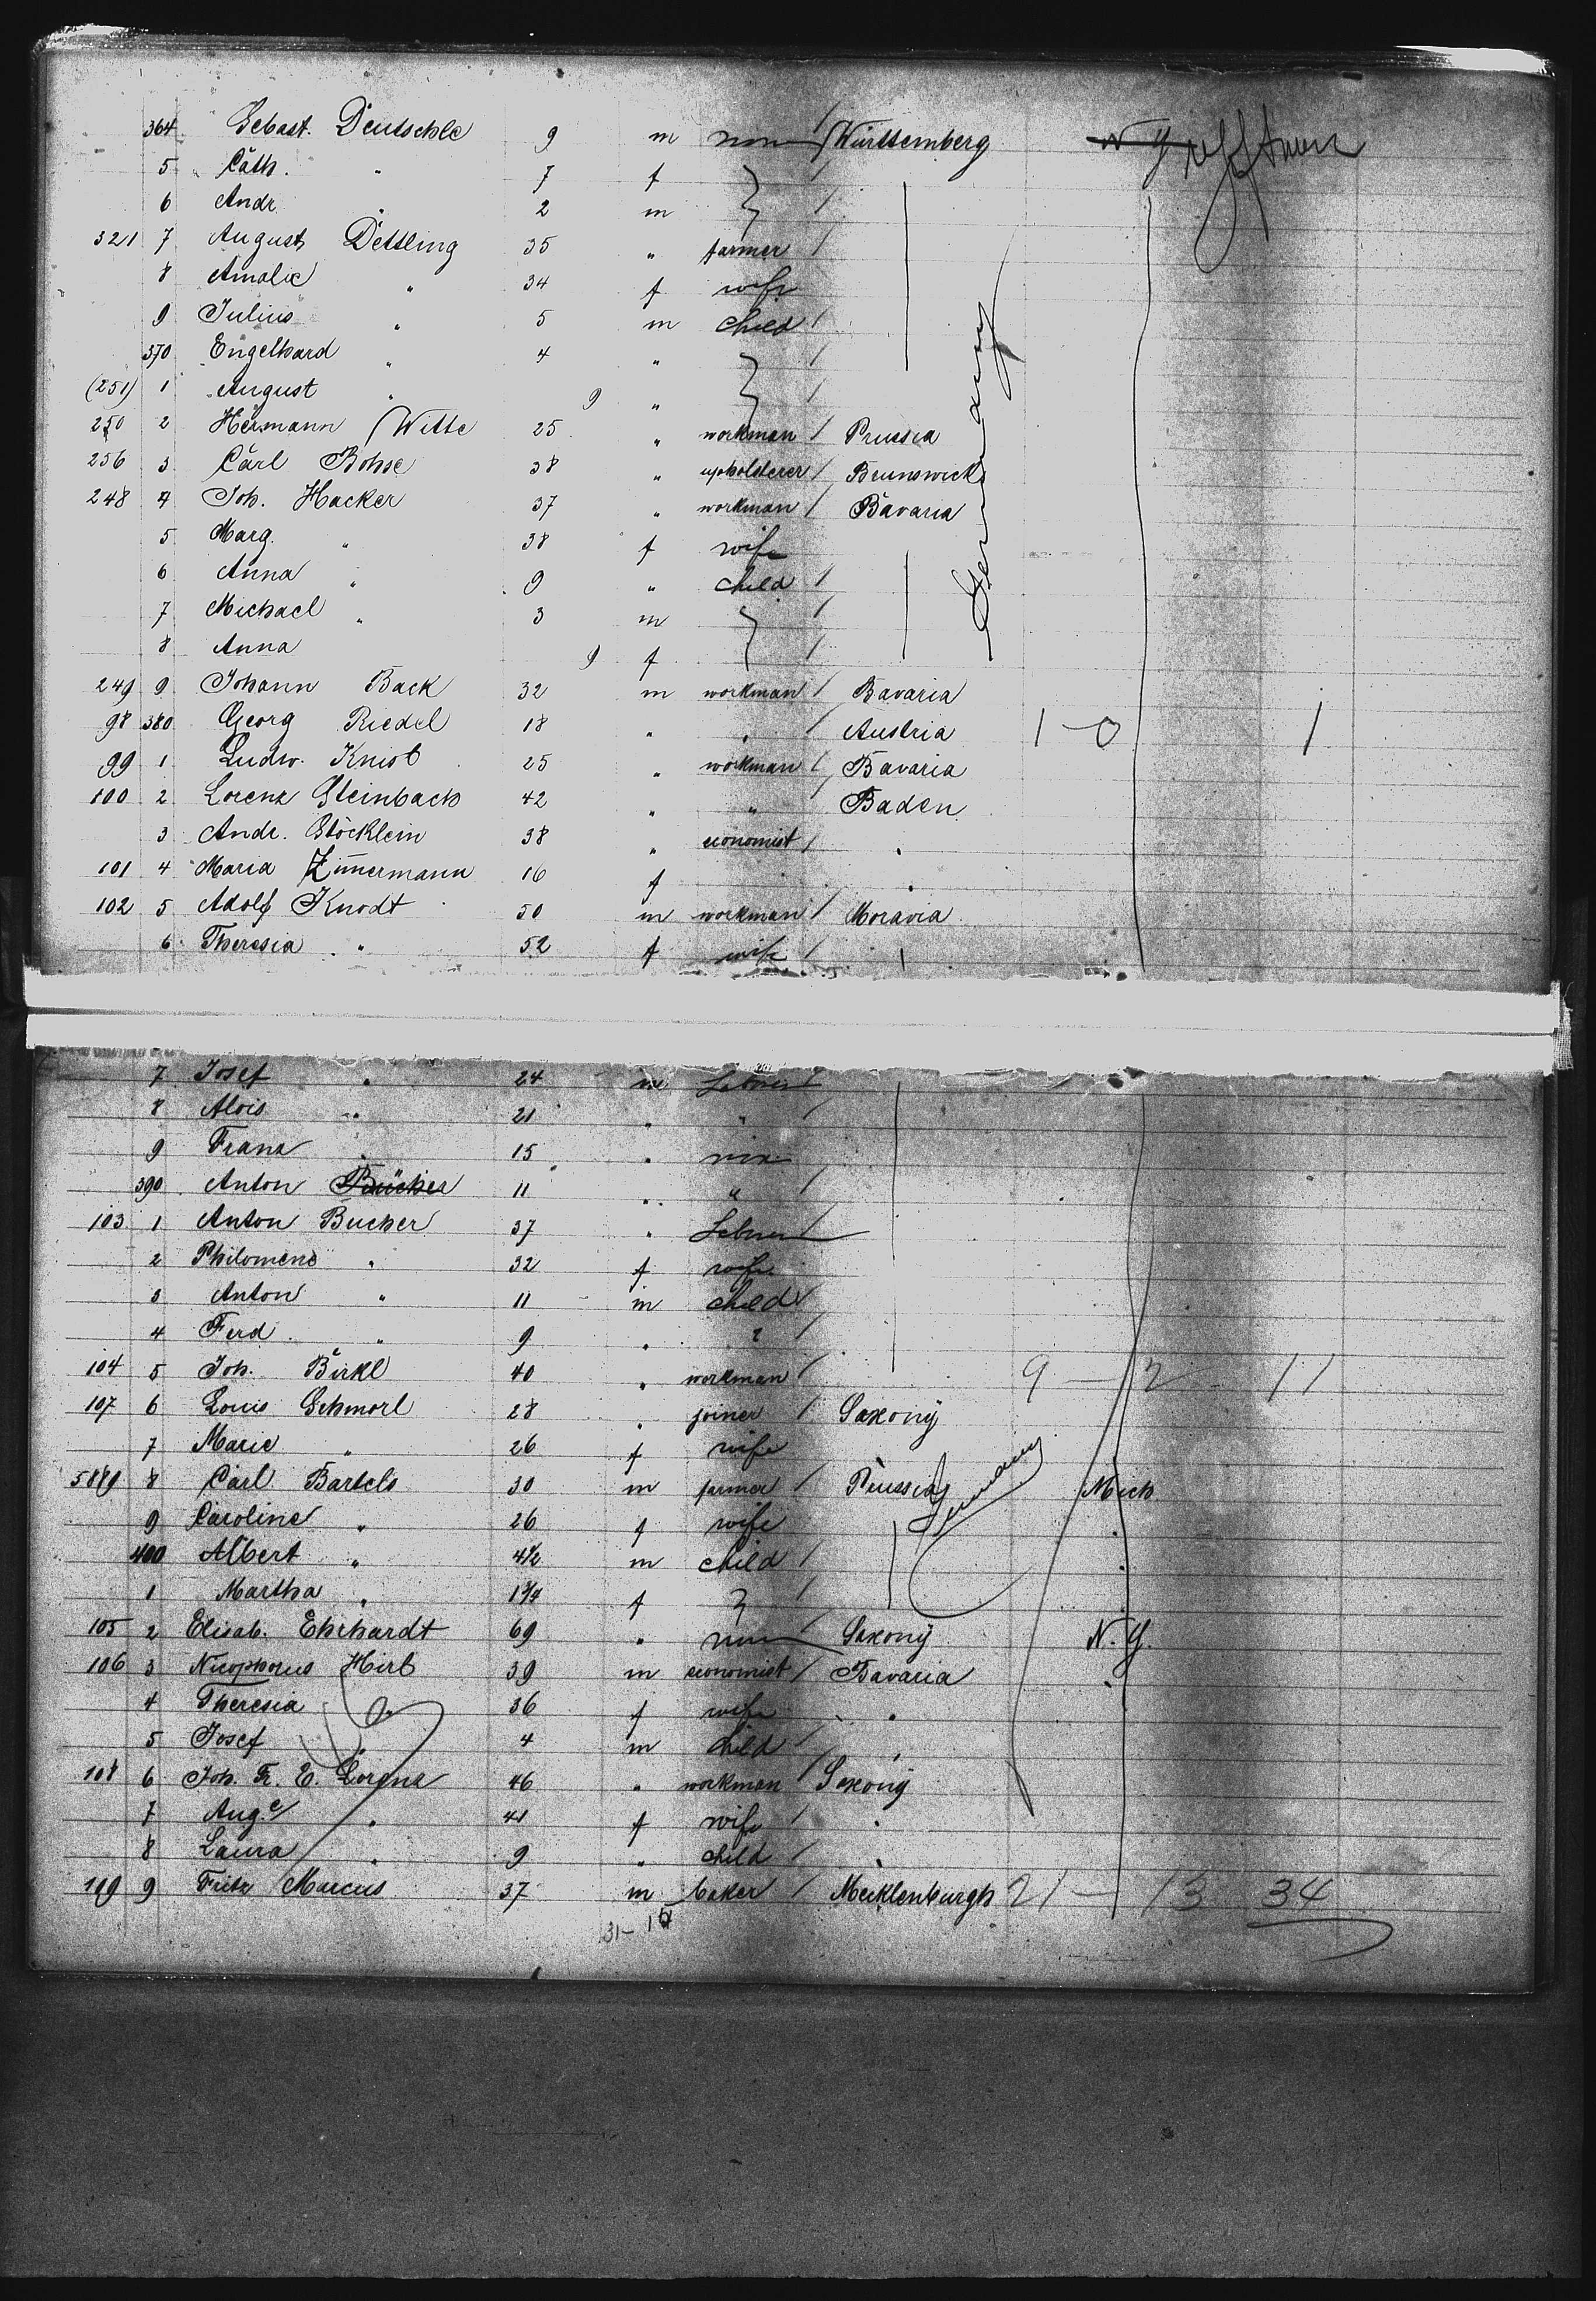 364 Sebast. Deutschle 9 m non / Württemberg
5 Cath. " 7 f } /
6 Andr. " 2 m } /
321 7 August Dettling 35 " farmer /
8 Amalie " 34 f wife
9 Julius " 5 m child /
370 Engelhard " 4 " } /
(251) 1 August " 9 " } /
250 2 Hermann Witte 25 " workman / Prussia
256 3 Carl Bohse 38 " upholsterer / Brunswick
248 4 Joh. Hacker 37 " workman / Bavaria
5 Marg. " 38 f wife
6 Anna " 9 " child /
7 Michael " 3 m } /
8 Anna 9 f } /
Germany
249 9 Johann Back 32 m workman / Bavaria
98 380 Georg Riedel 18 " " / Austria 1 - 0 1
99 1 Ludw. 25 " workman / Bavaria
100 2 Lorenz Steinbach 42 " " / Baden
3 Andr. Stöcklein 38 " economist / "
101 4 Maria Zimmermann 16 f "
102 5 Adolf Knodt 50 m workman / Moravia
6 Theresia " 52 f wife /
7 Josef " 24 m Laborer /
8 Alois " 21 " " /
9 Franz " 15 "
390 Anton 11 " " /
103 1 Anton Bucher 37 " /
2 Philomene " 32 f wife
3 Anton " 11 m child /
4 Ferd. " 9 " /
104 5 Joh. Birkl 40 " workman / 9 - 2 11
107 6 Louis Schmorl 28 " joiner / Saxony
7 Marie " 26 f wife
5889 8 Carl Bartels 30 m farmer / Prussia Germany Mich
9 Caroline " 26 f wife "
400 Albert " 4½ m child / "
1 Martha " 1¾ f } / "
105 2 Elisab. Ehrhardt 69 " non Saxony N. Y.
106 3 Nicophorus Hirt 39 m economist / Bavaria "
4 Theresia " 36 f wife "
5 Josef " 4 m child / "
108 6 Joh. Fr. E. Lorenz 46 " workman / Saxony
7 Aug.e " 41 f wife / "
8 Laura " 9 " child / "
109 9 Fritz Marcus 37 m baker / Mecklenburgh 21 - 13 34
31 -